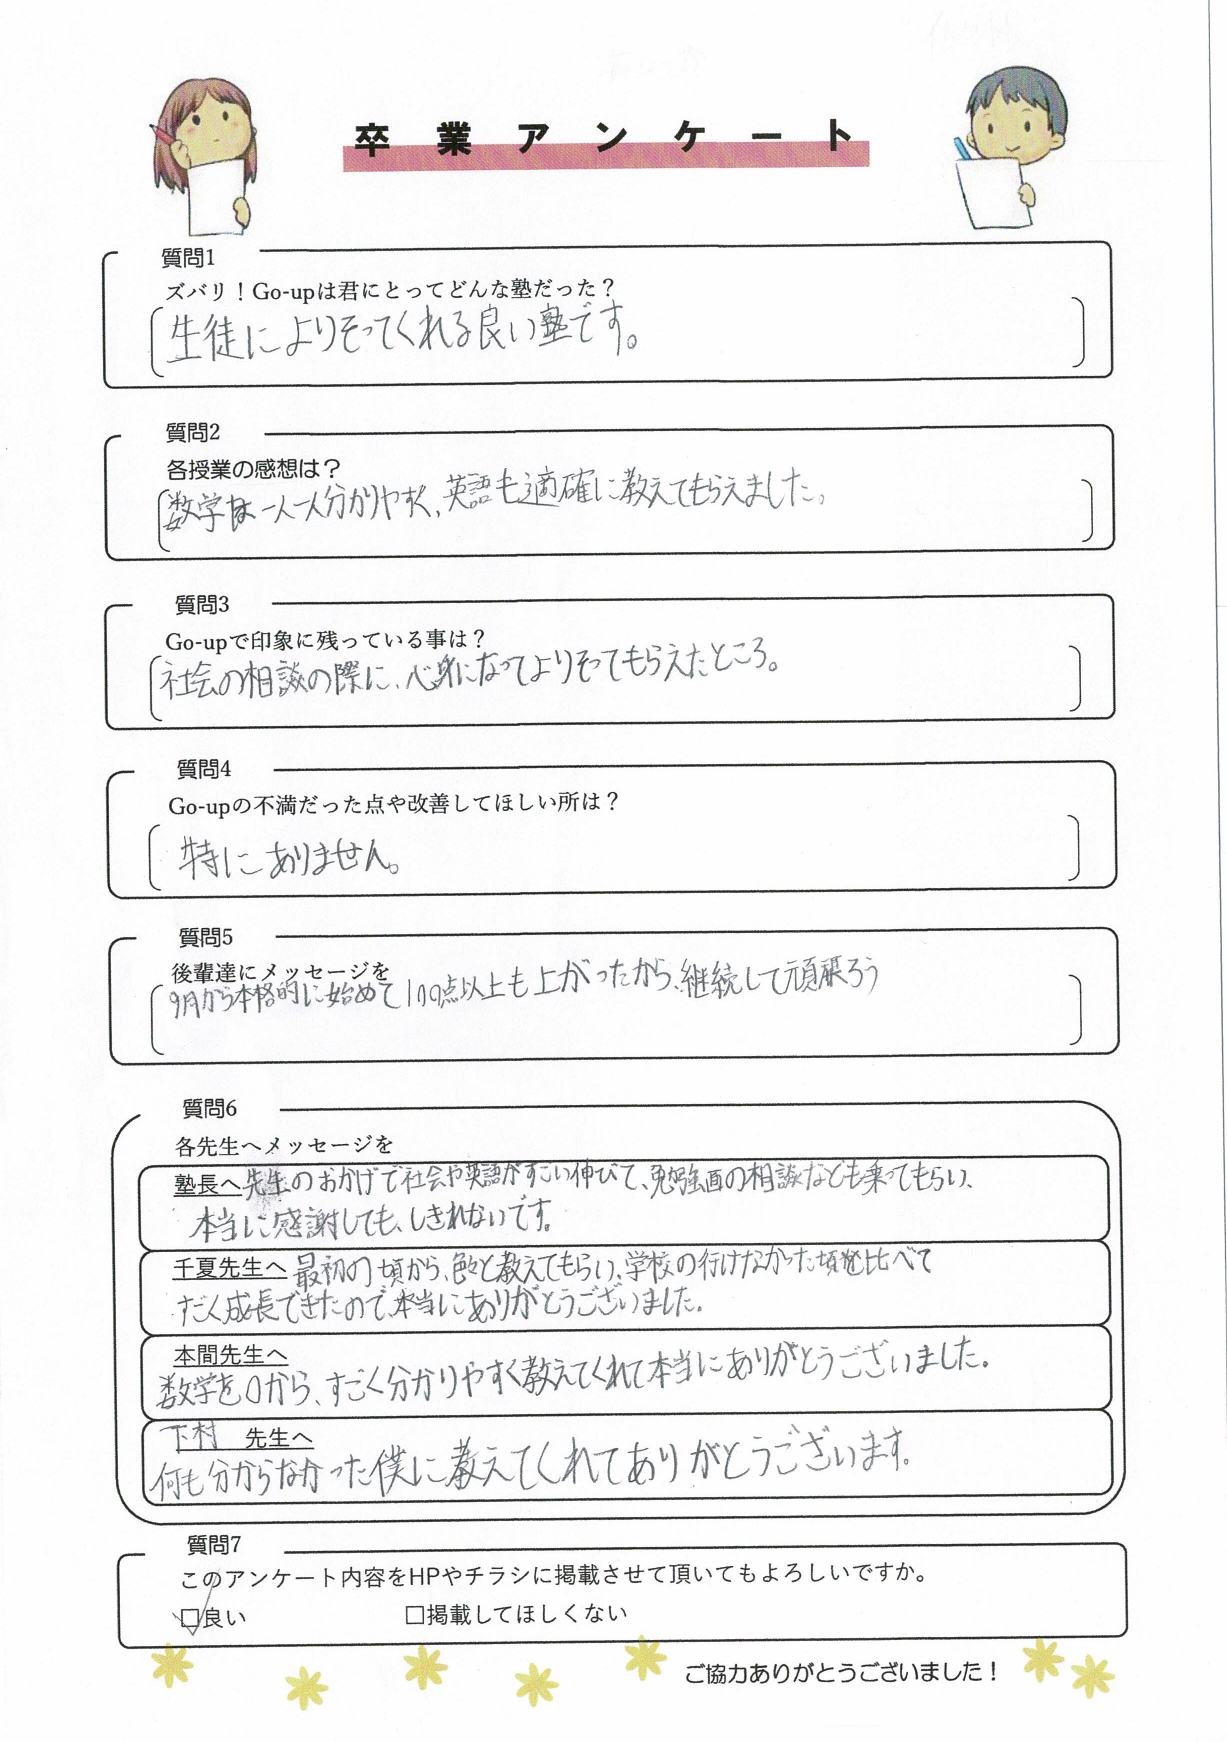 卒業アンケート
質問1
ズバリ！Go-upは君にとってどんな塾だった？
生徒によりそってくれる良い塾です。
質問2
各授業の感想は？
数学は一人一人分かりやすく、英語も適確に教えてもらえました。
質問3
Go-upで印象に残っている事は？
社会の相談の際に、心身になってよりそってもらえたところ。
質問4
Go-upの不満だった点や改善してほしい所は？
特にありません。
質問5
後輩達にメッセージを
9月から本格的に始めて100点以上も上がったから、継続して頑張ろう
質問6
各先生へメッセージを
塾長へ 先生のおかげで社会や英語がすごい伸びて、勉強面の相談なども乗ってもらい、
本当に感謝しても、しきれないです。
千夏先生へ 最初の頃から、色々と教えてもらい、学校の行けなかった頃と比べて
すごく成長できたので、本当にありがとうございました。
本間先生へ
数学を0から、すごく分かりやすく教えてくれて本当にありがとうございました。
下村 先生へ
何も分からなかった僕に教えてくれてありがとうございます。
質問7
このアンケート内容をHPやチラシに掲載させて頂いてもよろしいですか。
☑良い □掲載してほしくない
ご協力ありがとうございました！